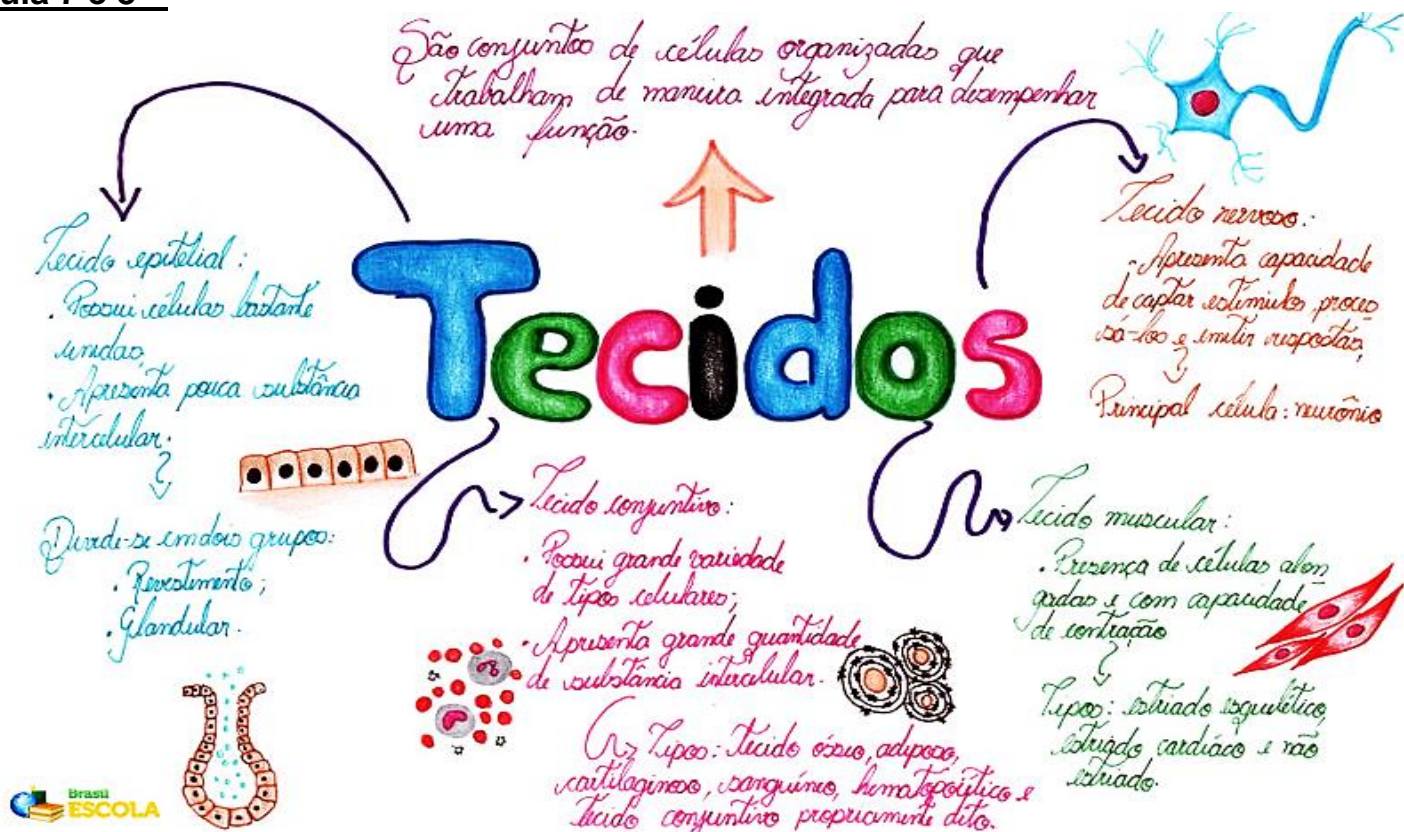 São conjuntos de células organizadas que
trabalham de maneira integrada para desempenhar
uma função.
Tecidos
Tecido epitelial:
. Possui células bastante
unidas,
. Apresenta pouca substância
intercelular.
Divide-se em dois grupos:
. Revestimento;
. Glandular.
Tecido conjuntivo:
. Possui grande variedade
de tipos celulares;
. Apresenta grande quantidade
de substância intercelular.
Tipos: tecido ósseo, adiposo,
cartilaginoso, sanguíneo, hematopoiético e
tecido conjuntivo propriamente dito.
Tecido nervoso:
. Apresenta capacidade
de captar estímulos, proces
sá-los e emitir respostas,
Principal célula: neurônio
Tecido muscular:
. Presença de células alon
gadas e com capacidade
de contração
Tipos: estriado esquelético,
estriado cardíaco e não
estriado.
Brasil
ESCOLA